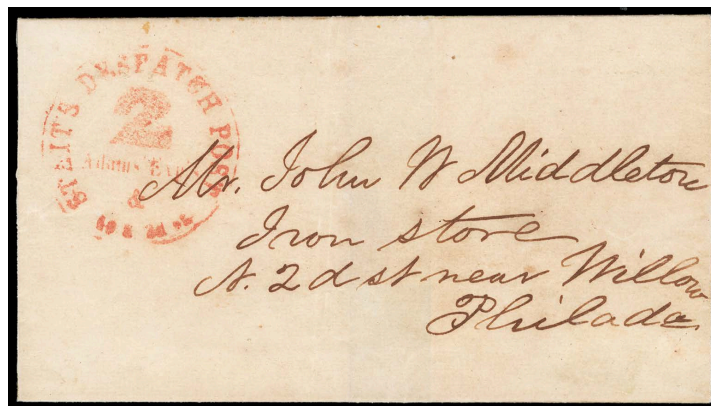 STEITS DESPATCH POST
2
Adams' Exp
&
Mr. John W Middleton
Iron store
N. 2d st near Willow
Philada